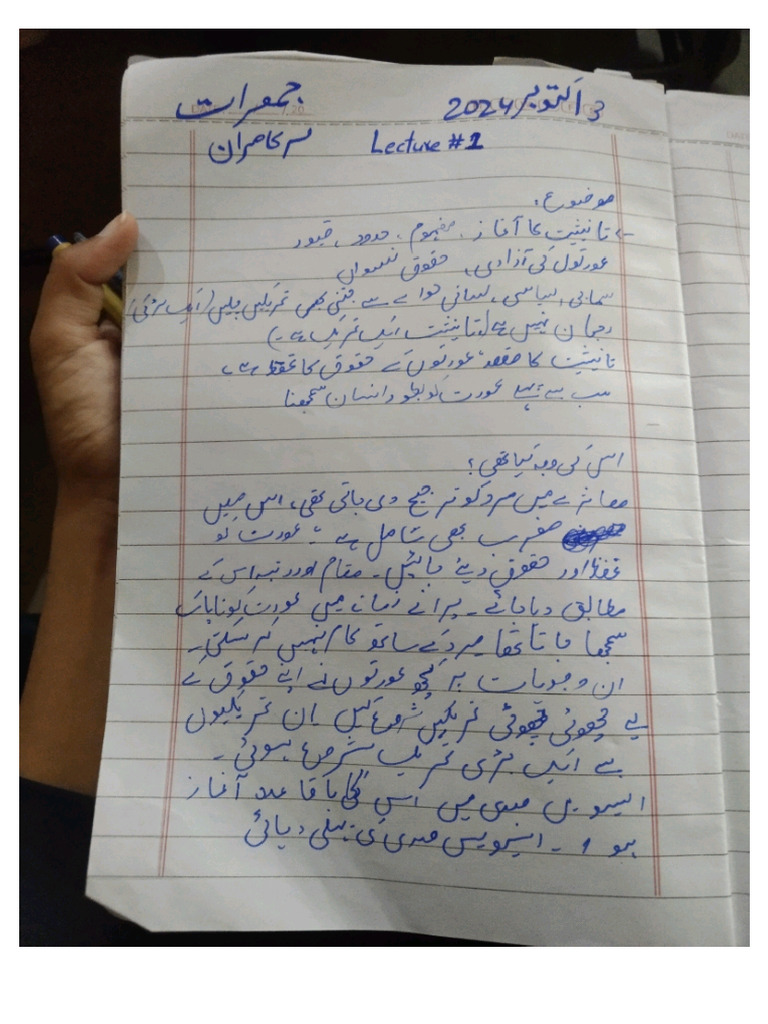 3 اکتوبر 2024 جمعرات
Lecture #1 سر کامران
موضوع:
تانیثیت کا آغاز، مفہوم، حدود، قیود
عورتوں کی آزادی، حقوق نسواں
سماجی، سیاسی، لسانی حوالے سے جتنی بھی تحریکیں چلیں (ایک
رجحان نہیں ہے (تانیثیت ایک تحریک ہے۔)
تانیثیت کا مقصد: عورتوں کے حقوق کا تحفظ ہے۔
سب سے پہلے عورت کو بطور انسان سمجھنا
اس کی وجہ کیا تھی؟
معاشرے میں مرد کو ترجیح دی جاتی تھی، اس میں
مغرب بھی شامل ہے۔ عورت کو
تحفظ اور حقوق دیئے جائیں۔ مقام اور رتبہ اس کے
مطابق دیا جائے۔ پرانے زمانہ میں عورت کو ناپاک
سمجھا جاتا تھا مرد کے ساتھ کام نہیں کر سکتی۔
ان وجوہات پر کچھ عورتوں نے اپنے حقوق کے
لیے چھوٹی چھوٹی تحریکیں شروع کیں ان تحریکوں
سے ایک بڑی تحریک شروع ہوئی۔
انیسویں صدی میں اس کا باقاعدہ آغاز
ہوا۔ انیسویں صدی کی پہلی دہائی